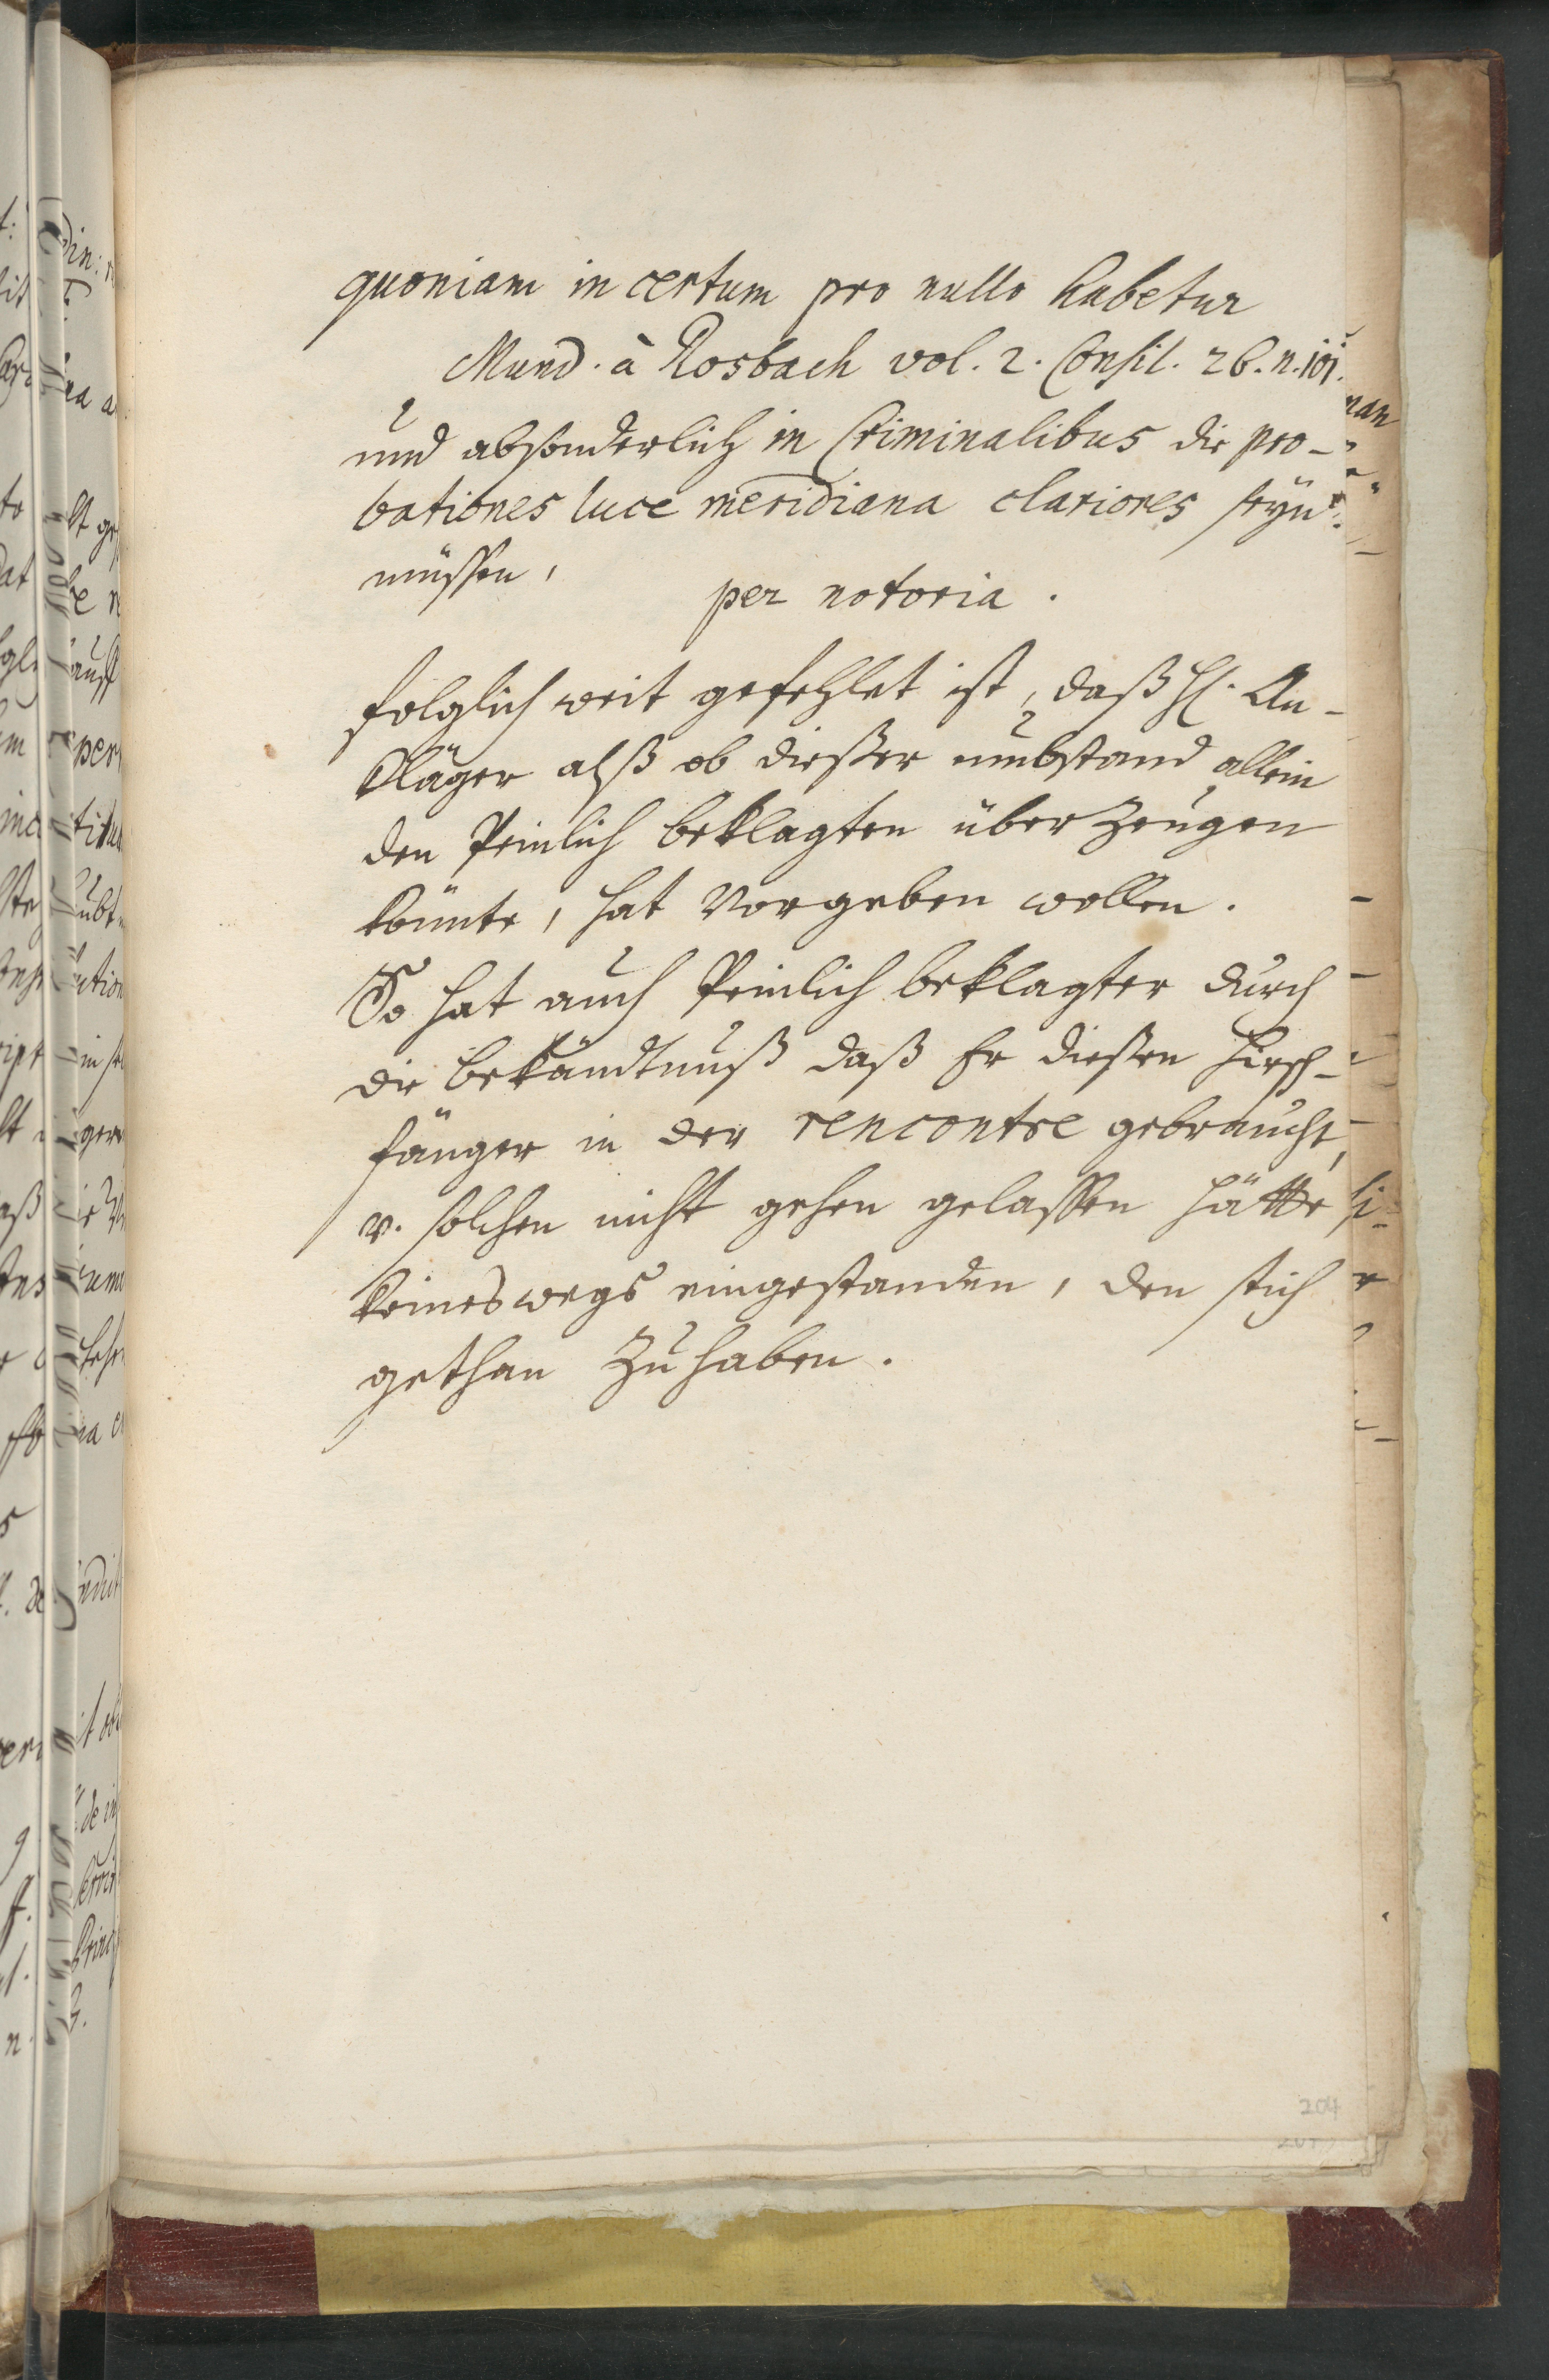 quoniam incertum pro nullo habetur
Mund. à Rosbach vol. 2. Consil. 26. n. 101.
und absonderlich in Criminalibus die pro-
bationes luce meridiana clariores seyn
müssen,
per notoria.
folglich weit gefehlet ist, daß H. An-
kläger alß ob dießer umbstand allein
den Peinlich beklagten überzeugen
könnte, hat vorgeben wollen.
So hat auch Peinlich beklagter durch
die bekändtnuß daß Er dießen Hirsch-
fänger in der rencontre gebraucht,
v. solchen nicht gehen gelassen hätte
keineswegs eingestanden, den stich
gethan zu haben.
204